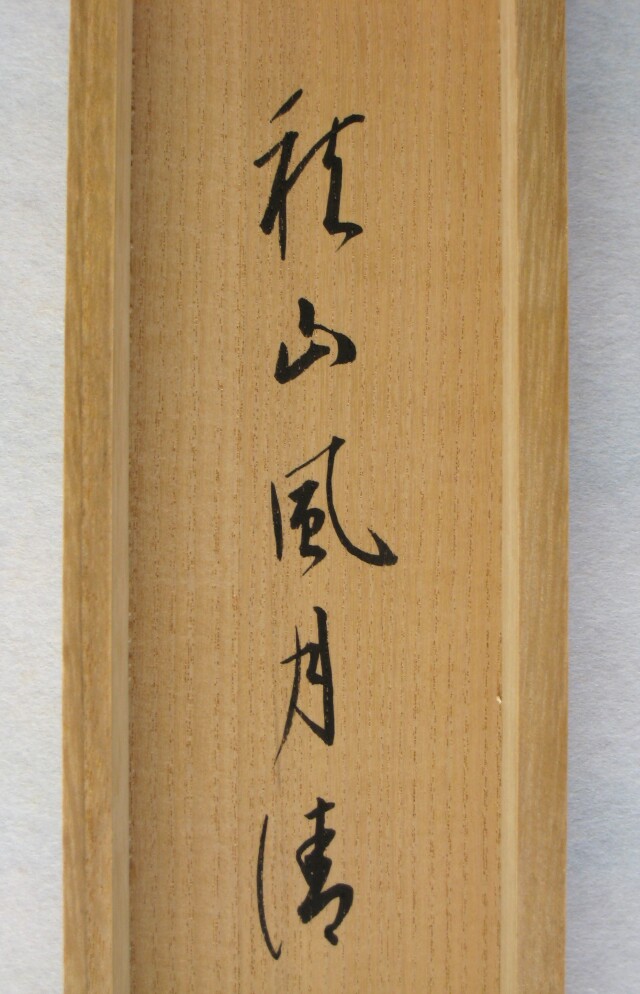 秋山風月清